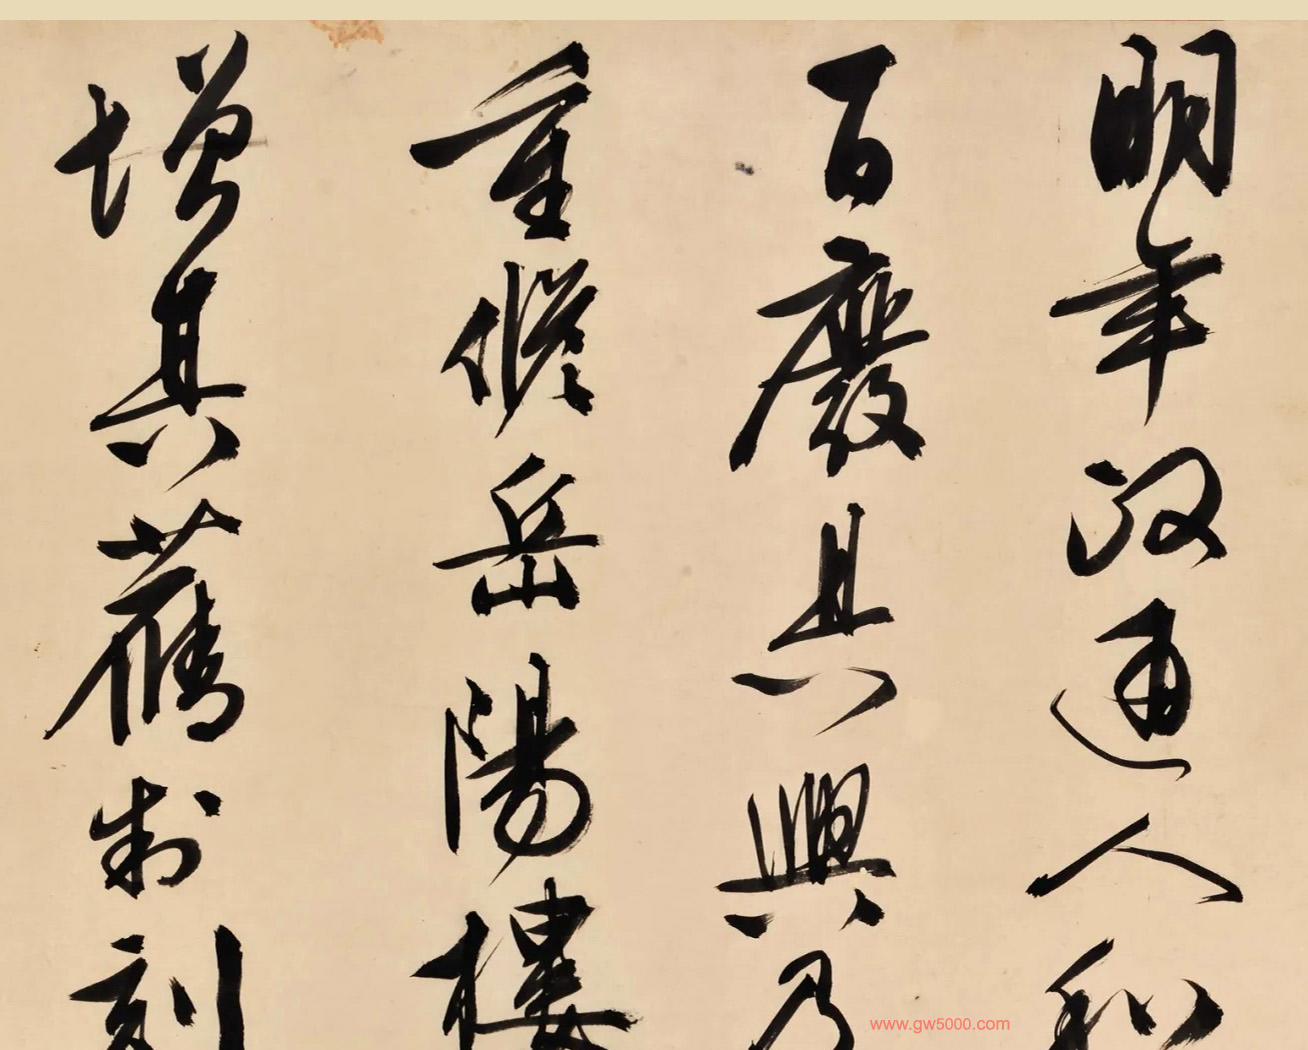 明年政通人和
百廢具興乃
重修岳陽樓
增其舊制刻
www.gw5000.com